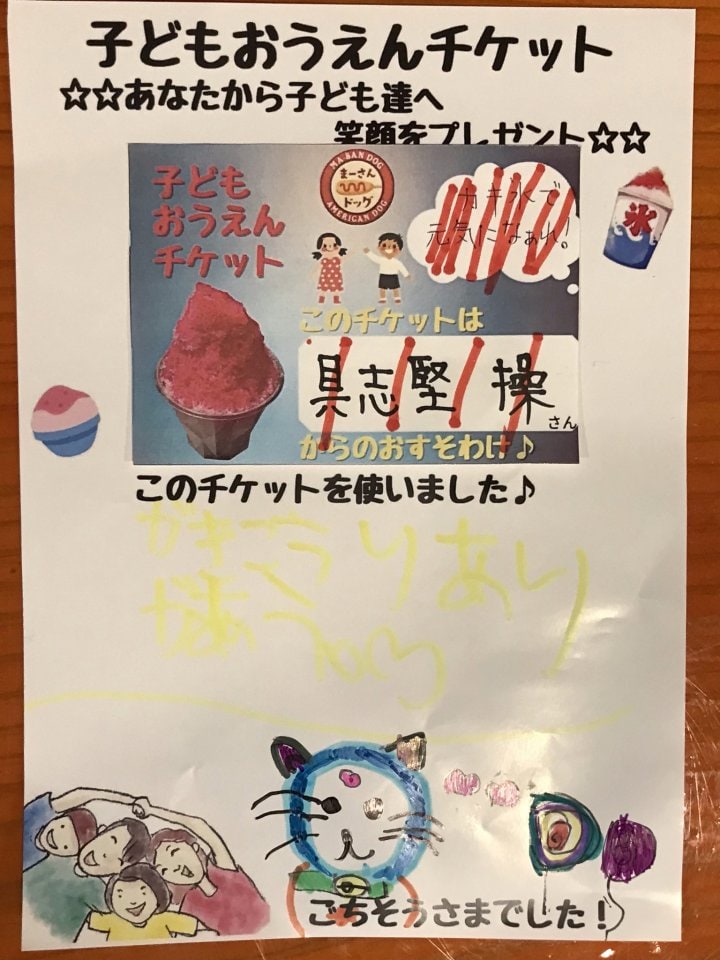 子どもおうえんチケット
☆☆あなたから子ども達へ
笑顔をプレゼント☆☆
子ども
おうえん
チケット
MA-SAN DOG
まーさん
ドッグ
AMERICAN DOG
カキ氷で
元気になあれ!
氷
このチケットは
具志堅 操
さん
からのおすそわけ♪
このチケットを使いました♪
ごちそうさまでした!